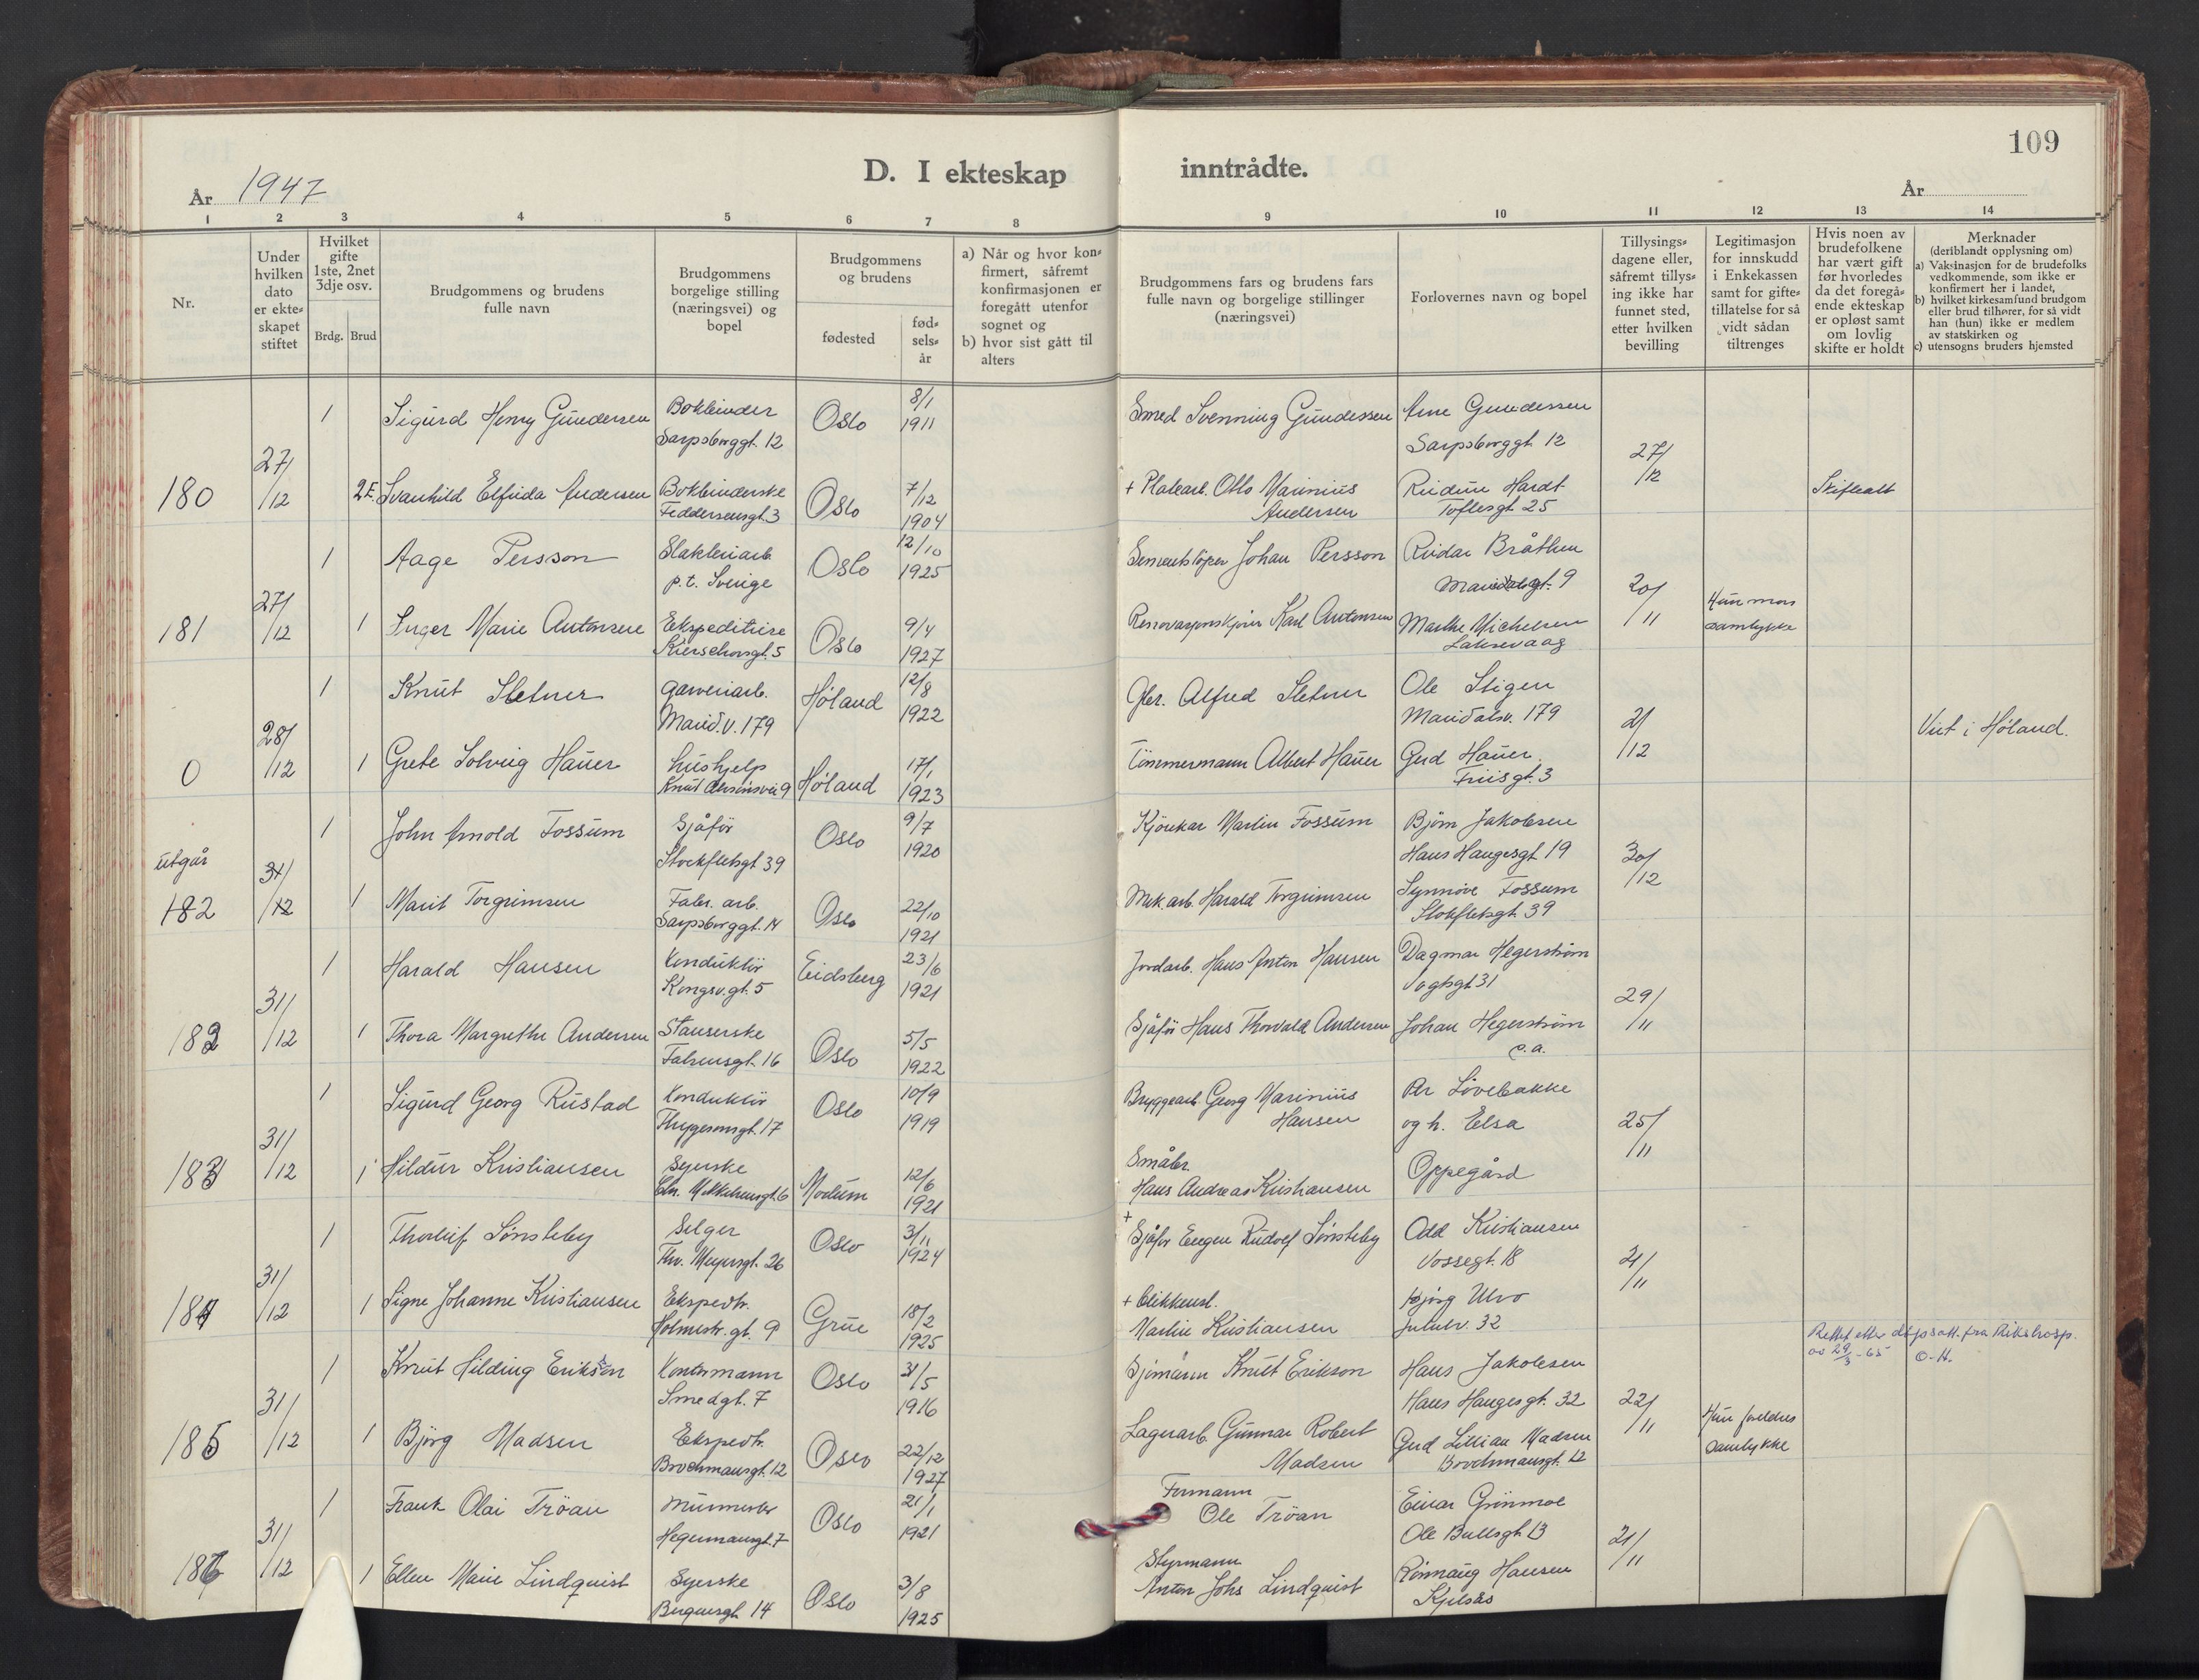 109
D. I ekteskap inntrådte.
År 1947
År
1 2 3 4 5 6 7 8 9 10 11 12 13 14
Nr.
Under
hvilken
dato
er ekte-
skapet
stiftet
Hvilket
gifte
1ste, 2net
3dje osv.
Brdg. Brud
Brudgommens og brudens
fulle navn
Brudgommens
borgelige stilling
(næringsvei) og
bopel
Brudgommens
og brudens
fødested
fød-
sels-
år
a) Når og hvor kon-
firmert, såfremt
konfirmasjonen er
foregått utenfor
sognet og
b) hvor sist gått til
alters
Brudgommens fars og brudens fars
fulle navn og borgelige stillinger
(næringsvei)
Forlovernes navn og bopel
Tillysings-
dagene eller,
såfremt tillys-
ing ikke har
funnet sted,
etter hvilken
bevilling
Legitimasjon
for innskudd
i Enkekassen
samt for gifte-
tillatelse for så
vidt sådan
tiltrenges
Hvis noen av
brudefolkene
har vært gift
før hvorledes
da det foregå-
ende ekteskap
er opløst samt
om lovlig
skifte er holdt
Merknader
(deriblandt opplysning om)
a) Vaksinasjon for de brudefolks
vedkommende, som ikke er
konfirmert her i landet,
b) hvilket kirkesamfund brudgom
eller brud tilhører, for så vidt
han (hun) ikke er medlem
av statskirken og
c) utensogns bruders hjemsted
1 Sigurd Henry Gundersen Bokbinder Oslo 8/1 1911 Smed Svenning Gundersen Arne Gundersen
Sarpsborggt. 12 Sarpsborggt 12
180 27/12 2 F. Svanhild Elfrida Andersen Bokbinderske Oslo 7/12 1904 + Platearb. Otto Marinius Reidun Hardt 27/12 Skifteatt
Feddersensgt. 3 Andersen Toftesgt 25
1 Aage Persson Slakteriarb. Oslo 12/10 1925 Sementstøper Johan Persson Reidar Bråthen
p.t. Sverige Maridalsgt. 9
181 27/12 1 Inger Marie Antonsen Ekspeditrise Oslo 9/4 1927 Renovasjonskjører Karl Antonsen Marthe Michelsen 20/11 Hun mors
Kierschowsgt. 5 Laksevaag samtykke
1 Knut Sletner Garveriarb. Høland 12/8 1922 Gbr. Alfred Sletner Ole Stigen
Marid.v. 179 Maridalsv. 179
0 28/12 1 Grete Solveig Hauer Hushjelp Høland 17/1 1923 Tømmermann Albert Hauer Gerd Hauer 2/12 Viet i Høland.
Friisgt. 3
1 John Arnold Fossum Sjåfør Oslo 9/7 1920 Kjørekar Martin Fossum Bjørn Jakobsen
Stockfletsgt 39 Hans Haugesgt 19
utgår
182 31/12 1 Marit Torgrimsen Fabr. arb. Oslo 22/10 1921 Mek. arb. Harald Torgrimsen Synnøve Fossum 30/12
Sarpsborggt. 14 Stokfletsgt. 39
1 Harald Hansen Konduktør Eidsberg 23/6 1921 Jordarb. Hans Anton Hansen Dagmar Hegerstrøm
Kongsv.gt. 5 Vogtsgt 31
182 31/12 1 Thora Margrethe Andersen Stanserske Oslo 5/5 1922 Sjåfør Hans Thorvald Andersen Johan Hegerstrøm 29/11
Falsensgt. 16 s.a.
1 Sigurd Georg Rustad Konduktør Oslo 10/9 1919 Bryggearb. Georg Marinius Per Løvebakke
Thygesonsgt. 17 Hansen og h. Elsa
183 31/12 1 Hildur Kristiansen Syerske Modum 12/6 1921 Småbr. Oppegård 25/11
Chr. Mikkelsensgt. 6 Hans Andreas Kristiansen
1 Thorleif Sønsteby Selger Oslo 3/11 1924 + Sjåfør Eugen Rudolf Sønsteby Odd Kristiansen
Thv. Meyersgt. 26 Vossegt. 18
184 31/12 1 Signe Johanne Kristiansen Ekspedtr. Grue 18/2 1925 + Blikkensl. Bjørg Ulvo 2/11
Holmestr. gt. 9 Martin Kristiansen Jutulv. 32
Rettet etter dåpsatt. fra Rikshosp.
29/3-65 O.H.
1 Knut Hilding Erikson Kontormann Oslo 31/5 1916 Sjømann Knut Erikson Hans Jakobsen
Smedgt. 7 Hans Haugesgt. 32
185 31/12 1 Bjørg Madsen Ekspedtr. Oslo 22/12 1927 Lagerarb. Gunnar Robert Gerd Lillian Madsen 22/11 Hun foreldres
Brochmansgt. 12 Madsen Brochmansgt. 12 samtykke
1 Frank Olai Trøan Murmester Oslo 21/1 1921 Formann Einar Grønmoe
Hegermansgt. 7 Ole Trøan Ole Bullsgt. 13
186 31/12 1 Ellen Marie Lindquist Syerske Oslo 3/8 1925 Styrmann Rønnaug Hansen 21/11
Bergensgt 14 Anton Johs Lindquist Kjelsås